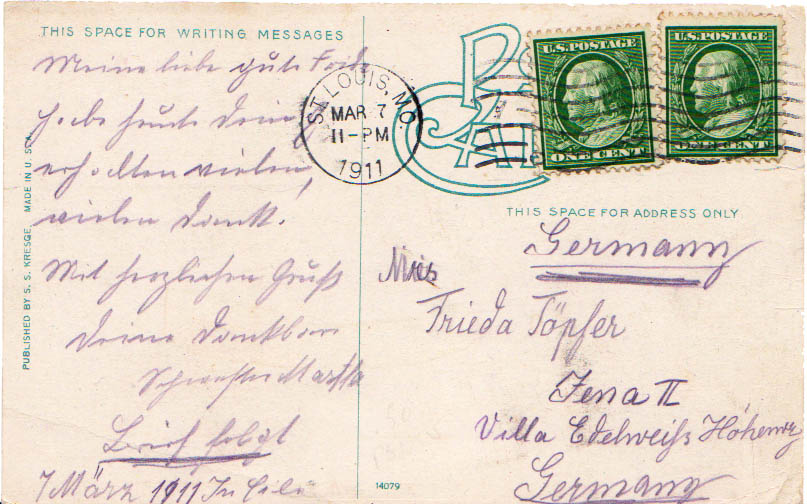 THIS SPACE FOR WRITING MESSAGES
Meine liebe gute
habe heute
erhalten vielen,
vielen Dank.
Mit herzlichen Gruß
Deine dankbare
Schwester Martha
Brief folgt
7 März 1911 In Eile
PUBLISHED BY S. S. KRESGE. MADE IN U. S. A.
ST. LOUIS, MO.
MAR 7
11-PM
1911
U.S. POSTAGE
ONE CENT
U.S. POSTAGE
ONE CENT
THIS SPACE FOR ADDRESS ONLY
Germany
Miss
Frieda Töpfer
Jena II
Villa Edelweiß
Germany
14079